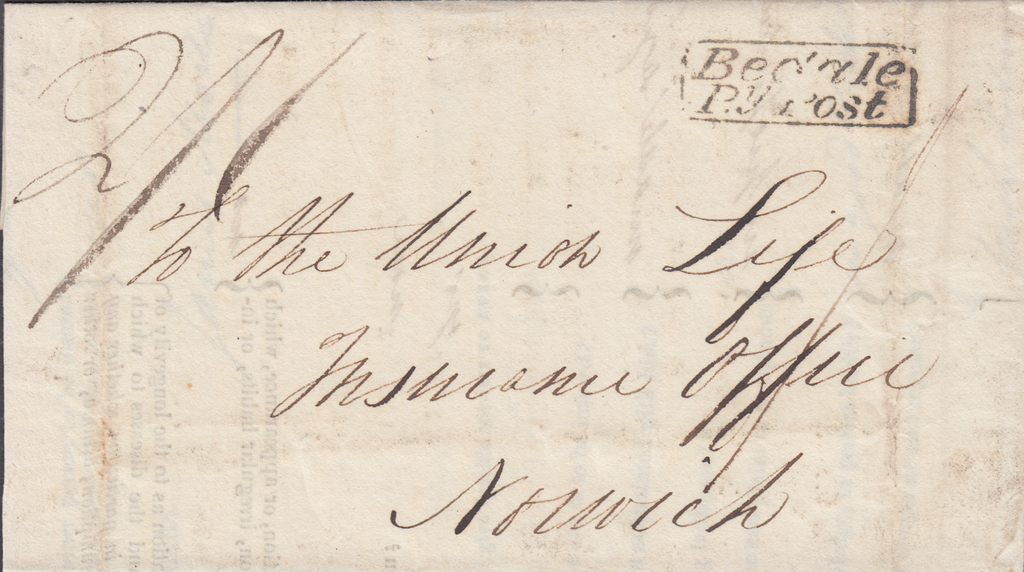 Bedale
P.y Post
2/1
To the Union Life
Insurance Office
Norwich